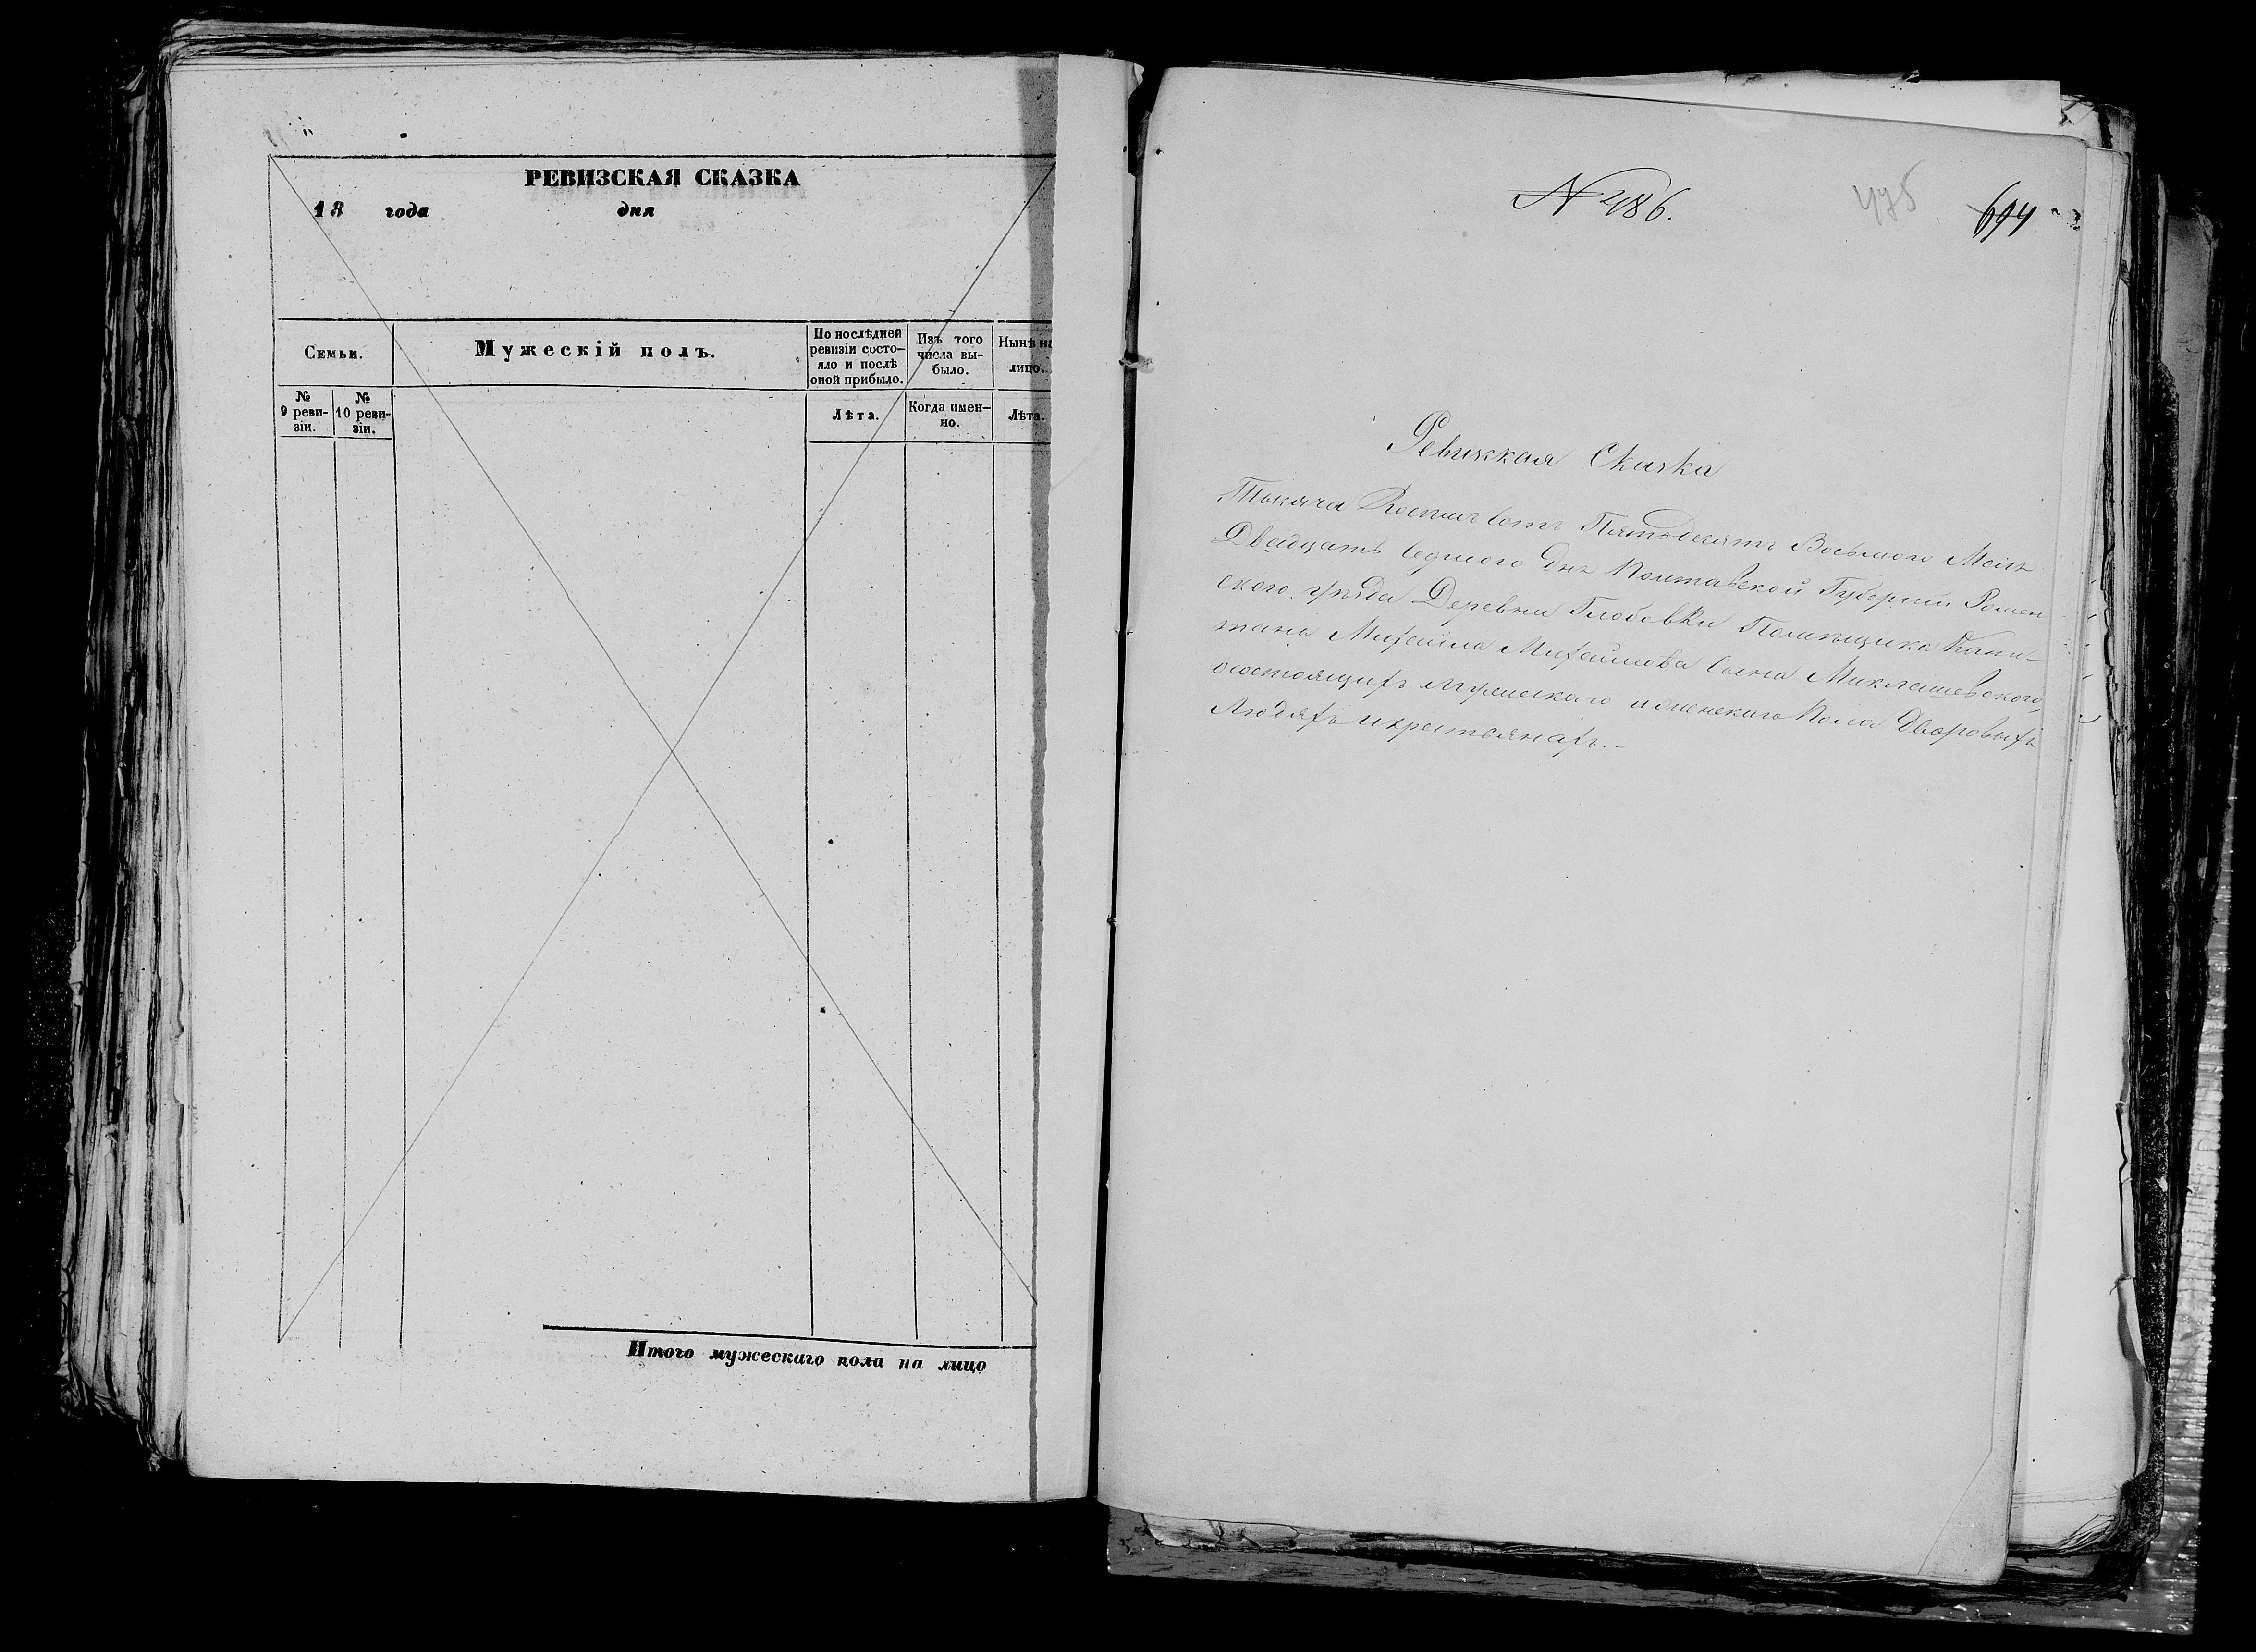 РЕВИЗСКАЯ СКАЗКА
18 года дня
Семьи.
Мужескій полъ.
По послѣдней ревизіи состо-
яло и послѣ
оной прибыло.
Изъ того
числа вы-
было.
Нынѣ на
лицо.
№
9 реви-
зіи.
№
10 реви-
зіи.
Лѣта.
Когда имен-
но.
Лѣта.
Итого мужескаго пола на лицо
N 486.
475
694
Ревизкая Сказка
Тысяча Восемь сотъ Пятьдесятъ Восьмого Маія
Двадцать седмого дня Полтавской Губерніи Ромен
ского уѣзда Деревни Глобовки Помѣщика Капи-
тана Михайла Михайлова сына Миклашевского,
о состоящихъ мужескаго и женскаго пола Дворовыхъ
Людяхъ и крестьянахъ.-